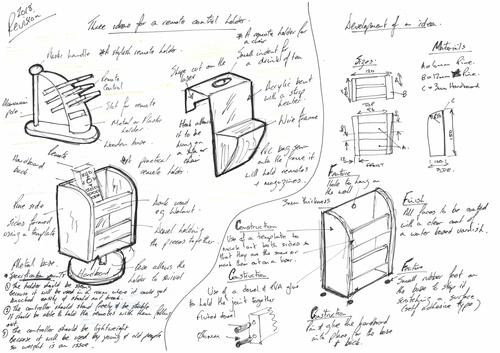 2018
Revision
Three ideas for a remote control holder.
Plastic handle
* A stylish remote holder.
Remote
Control
Slot for remote
Metal or Plastic
holder
Wooden base.
Aluminium
pole
* A remote holder for
a chair
Slope cut on the
Small indent for
a drink of tea
Acrylic bent
with a strip
heater.
Hook allows
it to be
hung on a
sofa or
chair
Wire frame
it will hold remotes
+ magazines.
Remote
Hardboard
back
* A practical
remote holder.
Pine side
Sides formed
using a template
Dark wood
eg Walnut.
Dowel holding
the pieces together
Metal base
Hardboard
Base allows the
holder to swivel
* Specification
① The holder should be strong
Because it will be used in a room where it could get
knocked easily & should not break.
② The controller should stand freely & be stable
It should be able to hold the remotes with them falling
out.
③ The controller should be lightweight
Because it will be used by young & old people
so weight is an issue.
Construction
Use of a template to
mark out both sides so
that they are the same
Construction
Use of a dowel & PVA glue
to hold the joint together
Fluted dowel
Development of an idea.
Sizes:
Materials
A = 6mm Pine.
B = 12mm Pine.
C = 3mm Hardboard
TOP
FRONT
SIDE.
Function
Hole to hang on
the wall
3mm thickness
Finish
All faces to be coated
with a clear coat of
a water based varnish.
Function
Small rubber feet on
the base to stop it
scratching a surface
(self adhesive type)
Construction
Pin & glue the hardboard
into place for the base
& back.